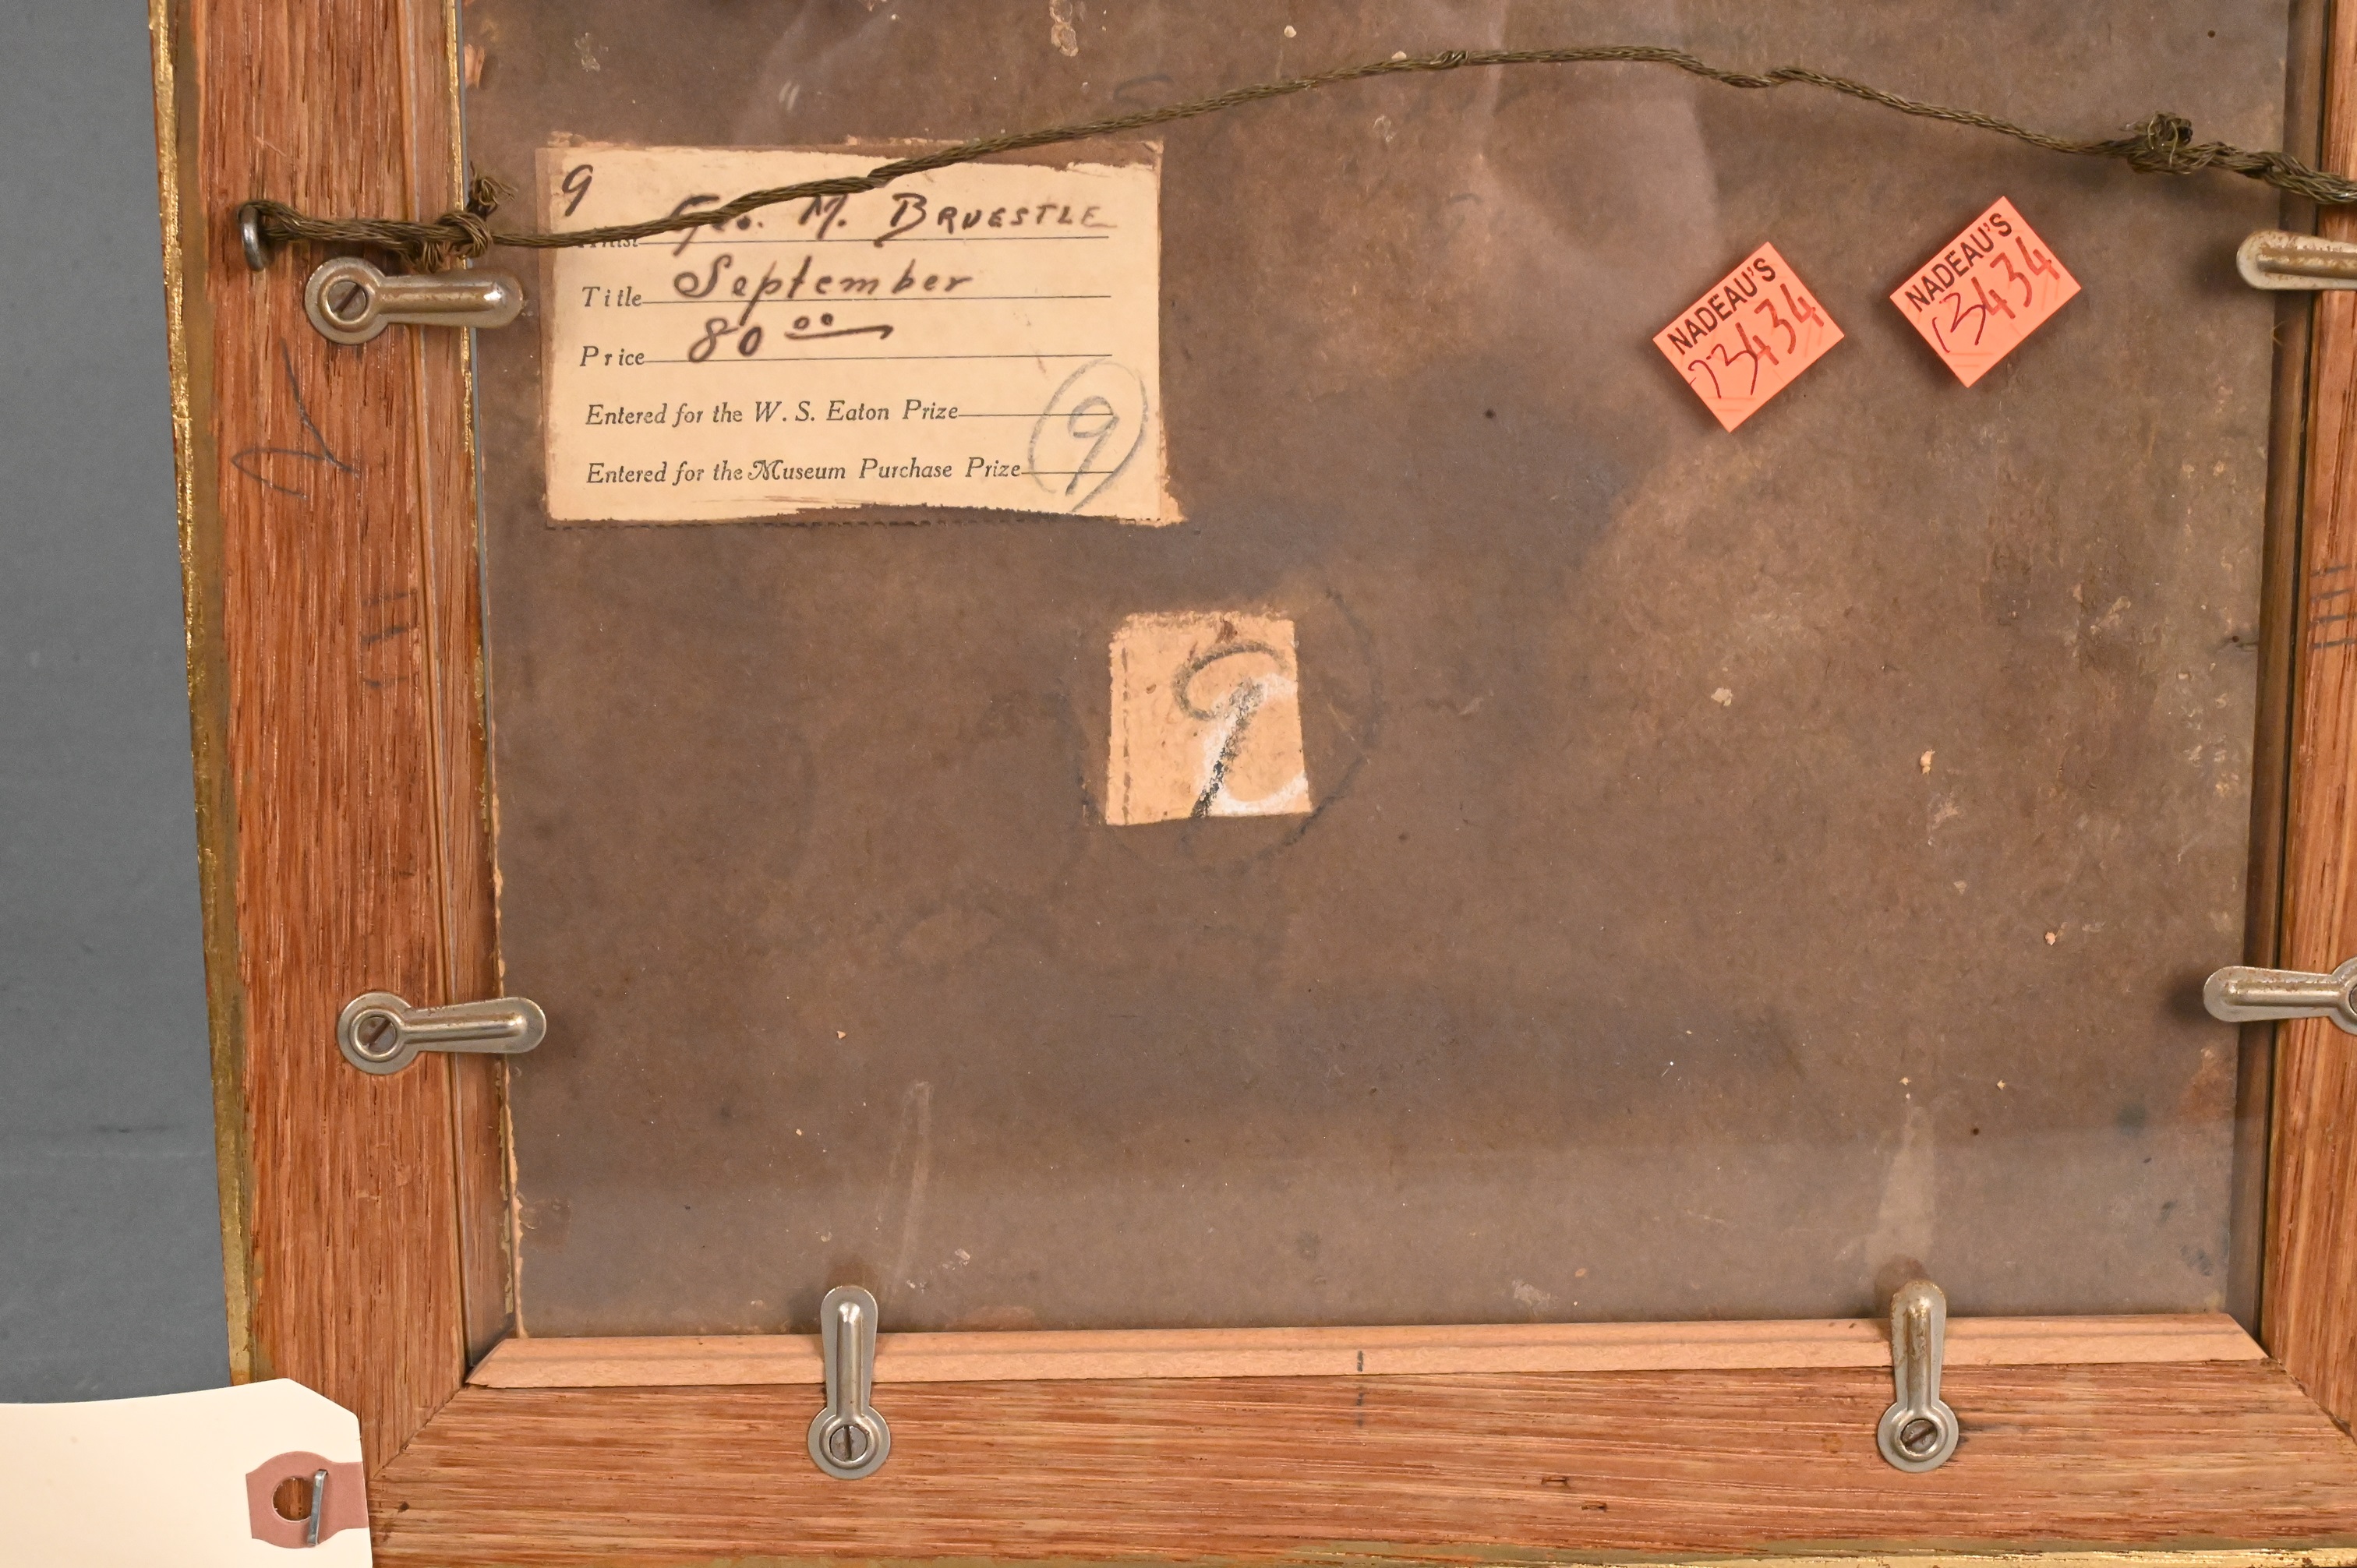 9
Artist Geo. M. BRUESTLE
Title September
Price 80 00
Entered for the W. S. Eaton Prize
Entered for the Museum Purchase Prize
9
NADEAU'S
13434
NADEAU'S
13434
9